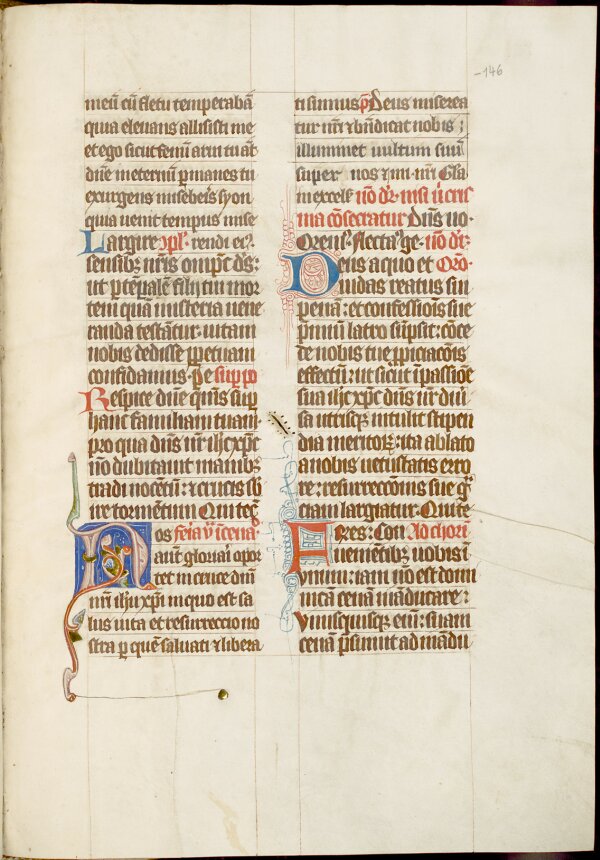 -146
meū cū fletu temperabā
quia eleuans allisisti me
et ego sicut fenū arui tu aūt
dūe in eternū pmanes tu
exurgens misebeis syon
quia uenit tempus mise
Largire cpl. rendi eī.
sensibꝫ nr̄is omp̄c ds:
ut p tēpalē filij tui mor
tem quā misteria uene
randa testātur uitam
nobis dedisse ppetuam
confidamus. pe sup pp
Respice dūe qs̄ms sup
hanc familiam tuam.
pro qua dn̄s nr̄ ihc xpc
nō dubitauit manibꝫ
tradi nocētiū: et crucis sb
ire tormētum Qui tec
Nos feīa v̄ ī cena dn̄i
aūt gloriari opor
tet in cruce dn̄i
nr̄i ihu xpi in quo est sa
lus uita et resurreccio no
stra p quē saluati ⁊ libera
ti sumus ps̄ Deus miserea
tur nr̄i ⁊ bn̄dicat nobis:
illuminet uultum suū
super nos ⁊ mi. nr̄i Gl̄a
in excels̄ nō dr̄. nisi ú cris
ma cōsecratur Dn̄s uo.
Orem̄s. flecta. ge. nō dr̄.
Deus a quo et Orō.
iudas reatus sui
penā: et confessiōis sue
pmiū latro sūpsit: cōce
de nobis tue ppiciacōis
effectū: ut sicut ī passiōe
sua ihc xpc dn̄s nr̄ diu
sa utrisqꝫ intulit stipen
dia meritoꝝ: ita ablato
a nobis uetustatis erro
re: resurreccōnis sue grā
ciam largiatur. Qui te
Fres: Con Ad chorin̄
uenientibꝫ uobis ī
unum: iam nō est domi
nicā cenā māducare:
Vnusquisqꝫ eni: suam
cenā psumit ad mādu